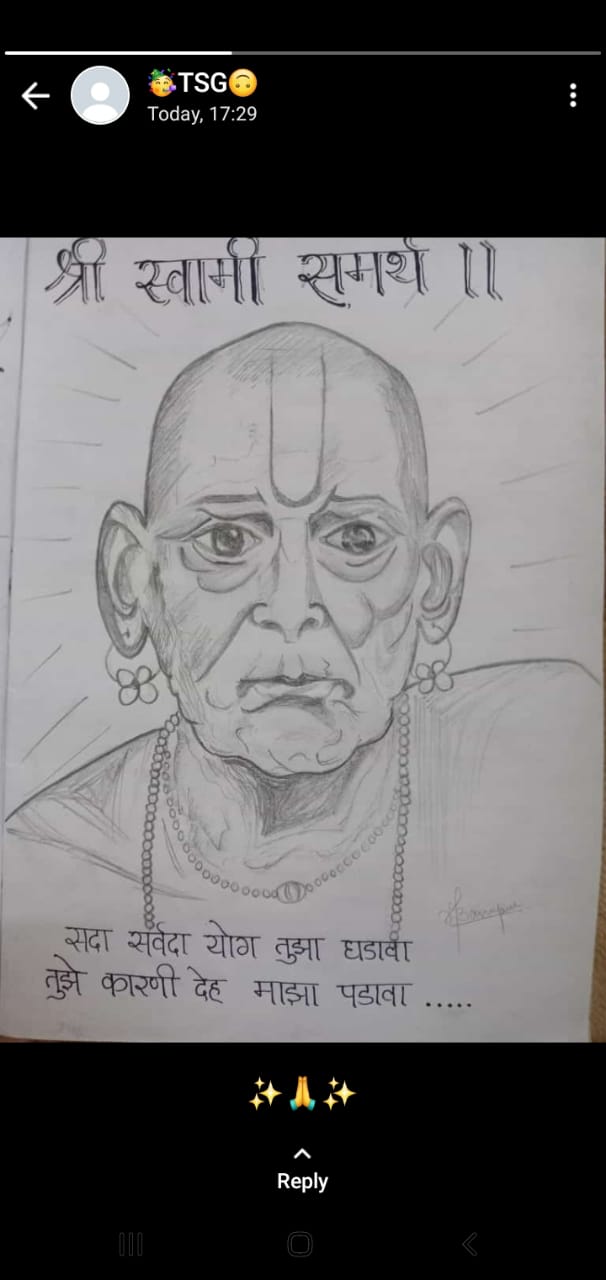 🥳TSG🙃
Today, 17:29
श्री स्वामी समर्थ ||
सदा सर्वदा योग तुझा घडावा
तुझे कारणी देह माझा पडावा .....
✨🙏✨
Reply